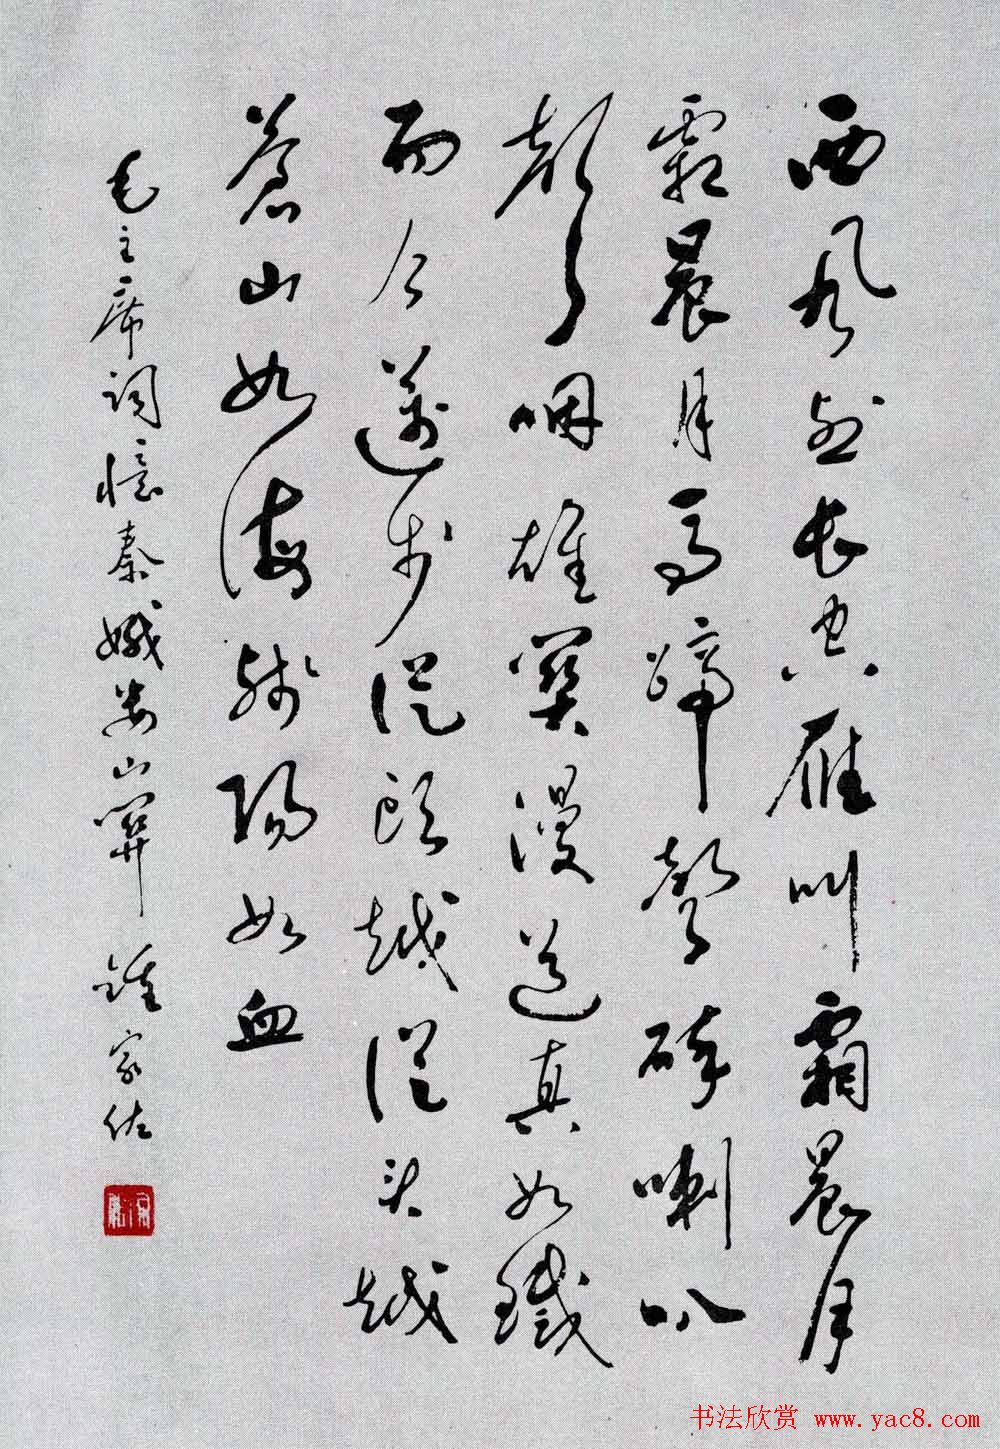 西风烈长空雁叫霜晨月
霜晨月马蹄聲碎喇叭
聲咽雄關漫道真如鐵
而今邁步從頭越從头越
蒼山如海殘陽如血
毛主席词憶秦娥娄山關 鍾家佐
书法欣赏 www.yac8.com